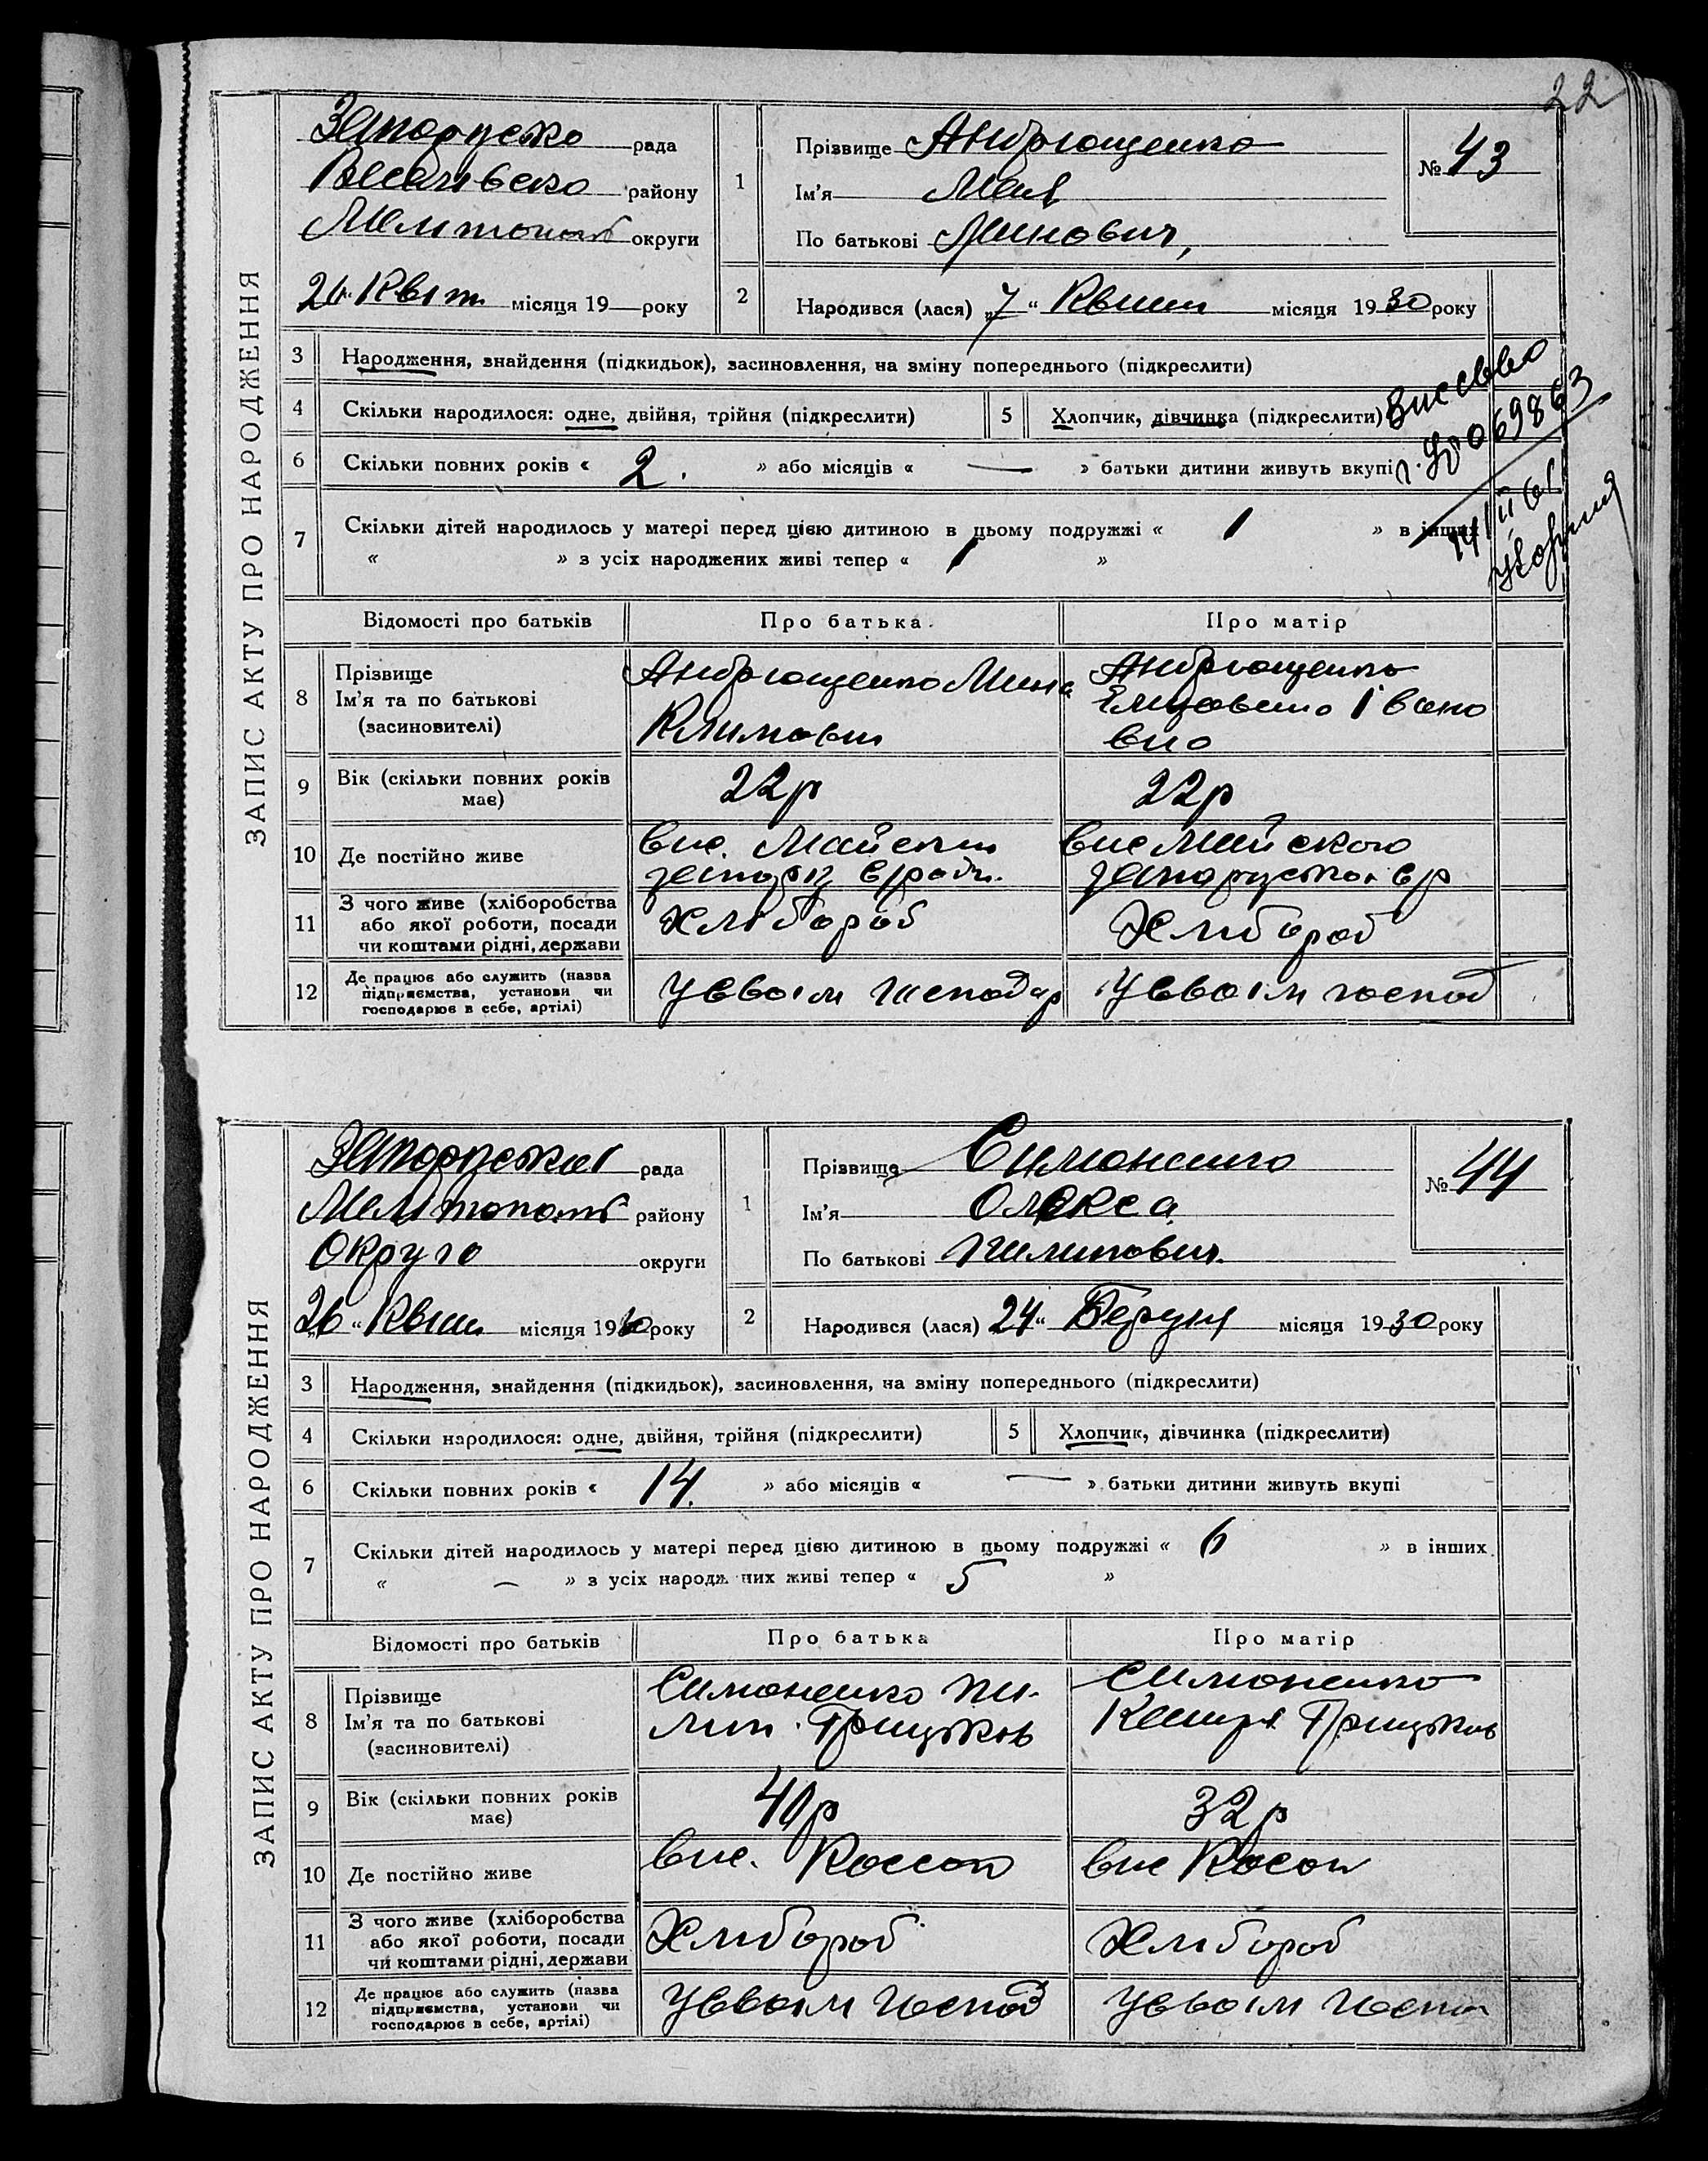 22
ЗАПИС АКТУ ПРО НАРОДЖЕННЯ
рада
району
Мелитопол округи
26 Квіт. місяця 19 року
1
Прізвище Андрющенко
Ім'я
По батькові Минович,
№ 43
2
Народився (лася) „7“ Квитн місяця 1930 року
3 Народження, знайдення (підкидьок), засиновлення, на зміну попереднього (підкреслити)
4 Скільки народилося: одне, двійня, трійня (підкреслити)
5 Хлопчик, дівчинка (підкреслити)
069863
6 Скільки повних років « 2. » або місяців « — » батьки дитини живуть вкупі
7 Скільки дітей народилось у матері перед цією дитиною в цьому подружжі « 1 » в інших
« » з усіх народжених живі тепер « 1 »
Відомості про батьків Про батька Про матір
8 Прізвище Ім'я та по батькові (засновителі)
Андрющенко Мина Климович
Андрющенко Івано
9 Вік (скільки повних років має) 22р 22р
10 Де постійно живе
вис. Майськи
вис Майського
11 З чого живе (хліборобства або якої роботи, посади чи коштами рідні, держави
Хлібороб
Хлибороб
12 Де працює або служить (назва підприємства, установи чи господарює в себе, артілі)
У своім господар
У своім господ
ЗАПИС АКТУ ПРО НАРОДЖЕННЯ
рада
Мелітопол району
Округо округи
26 “ Квітн місяця 1930 року
1
Прізвище Симоненко
Ім'я Олекса
По батькові Пилипович.
№ 44
2
Народився (лася) 24“ місяця 1930 року
3 Народження, знайдення (підкидьок), засиновлення, на зміну попереднього (підкреслити)
4 Скільки народилося: одне, двійня, трійня (підкреслити)
5 Хлопчик, дівчинка (підкреслити)
6 Скільки повних років « 14. » або місяців « — » батьки дитини живуть вкупі
7 Скільки дітей народилось у матері перед цією дитиною в цьому подружжі « 6 » в інших
« — » з усіх народжених живі тепер « 5 »
Відомості про батьків Про батька Про матір
8 Прізвище Ім'я та по батькові (засиновителі)
Симоненко Пи-
лип. Грицьков
Симоненко
Грицьков
9 Вік (скільки повних років має) 32р
10 Де постійно живе
вис. Коссоп
вис Косоп
11 З чого живе (хліборобства або якої роботи, посади чи коштами рідні, держави
Хлибороб
Хлибороб
12 Де працює або служить (назва підприємства, установи чи господарює в себе, артілі)
У своім господ
У своім госп